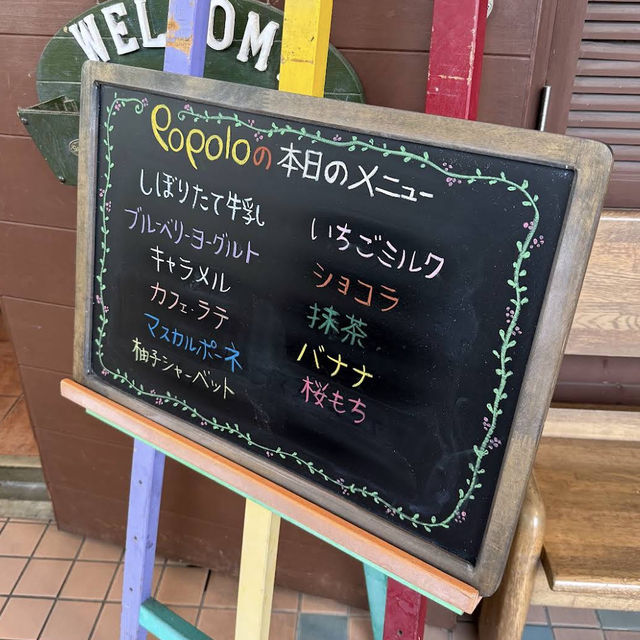 WELCOME
Popoloの本日のメニュー
しぼりたて牛乳
ブルーベリーヨーグルト
キャラメル
カフェ・ラテ
マスカルポーネ
柚子シャーベット
いちごミルク
ショコラ
抹茶
バナナ
桜もち